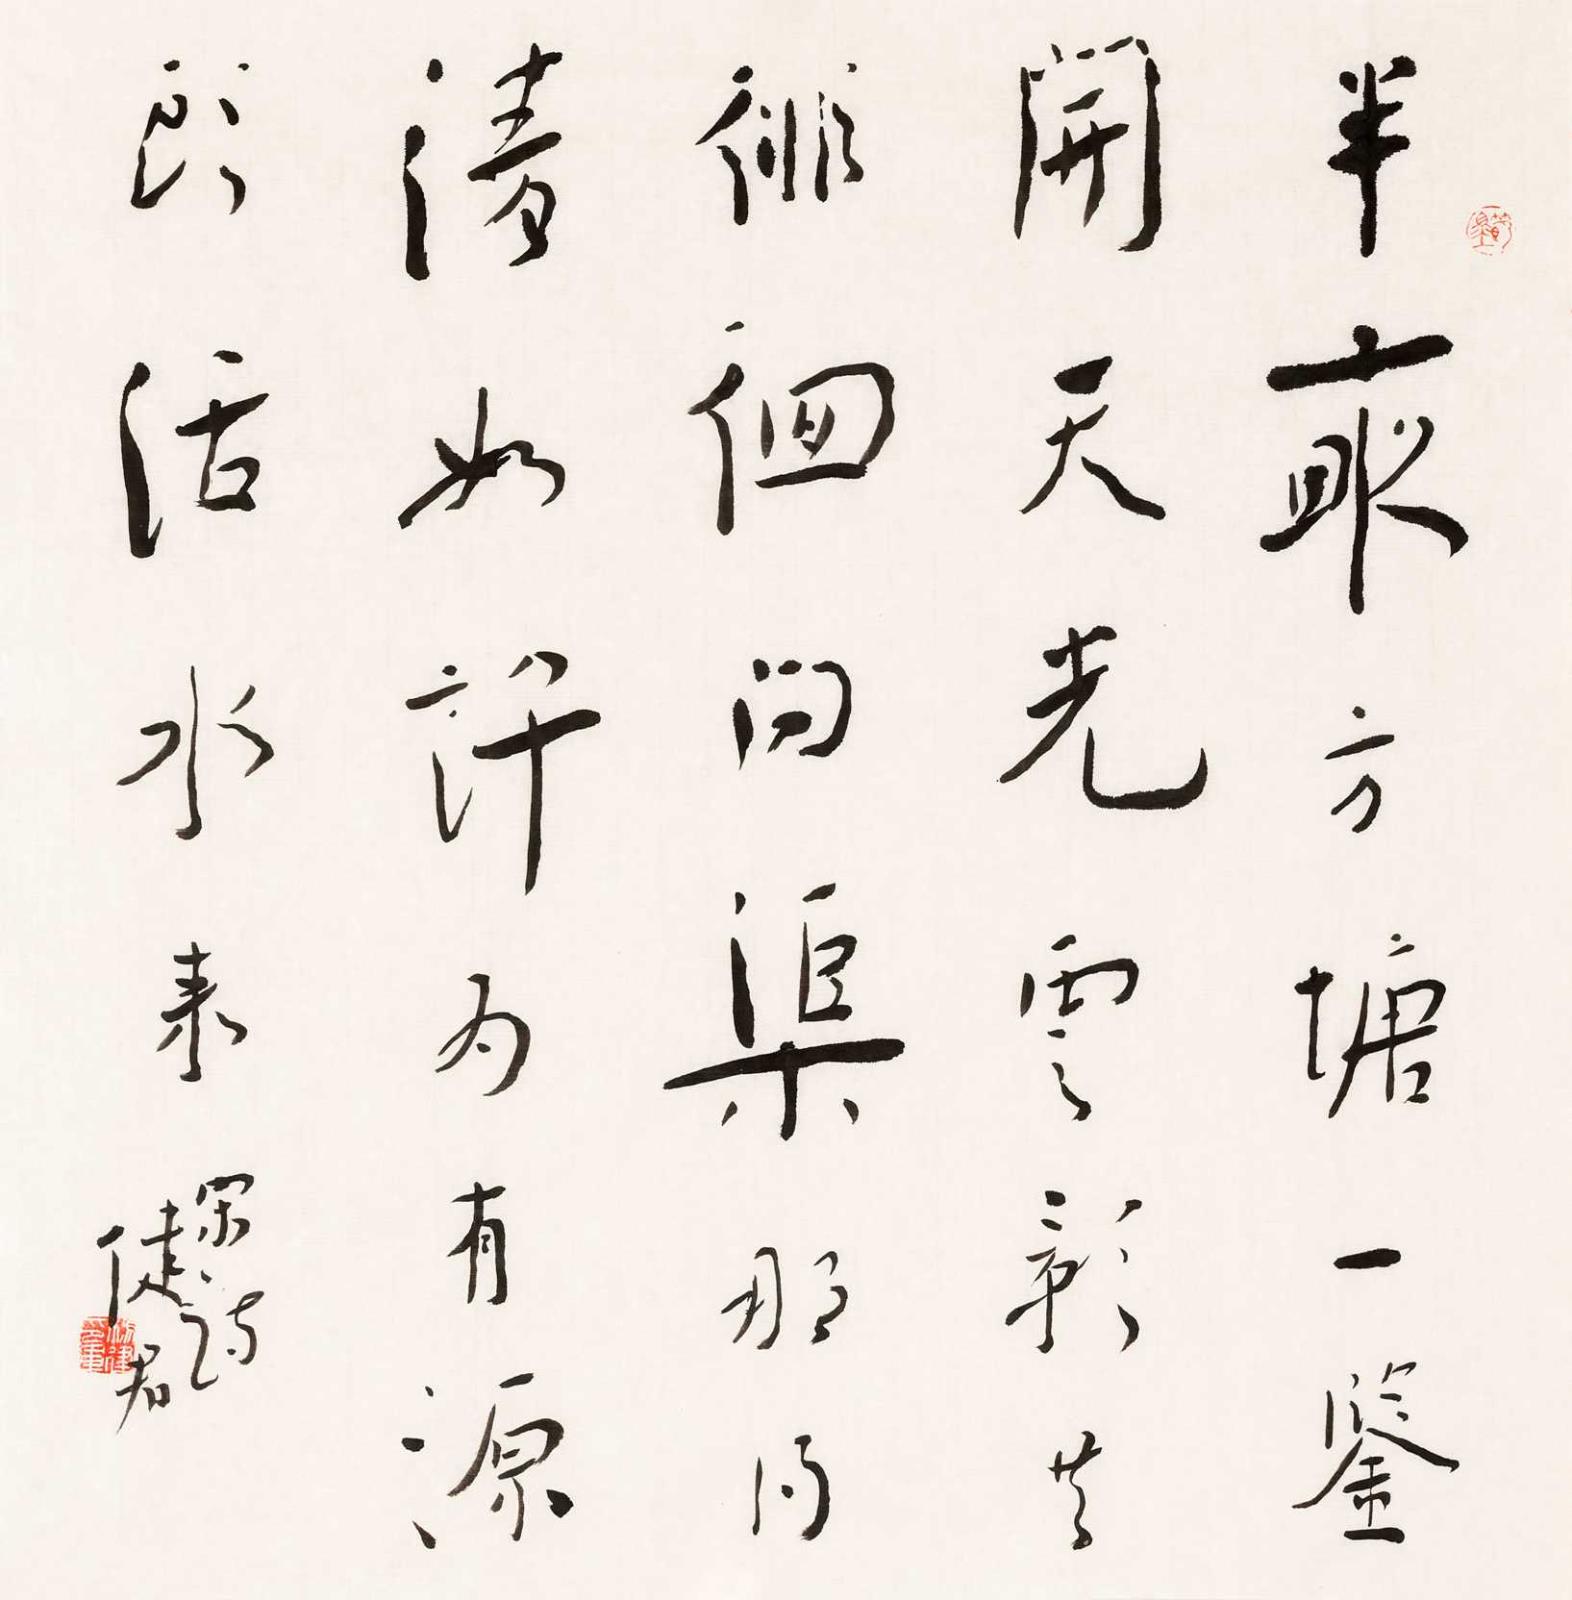 半畝方塘一鑒
開天光雲影共
徘徊問渠那得
清如許為有源
頭活水來
宋詩
健君